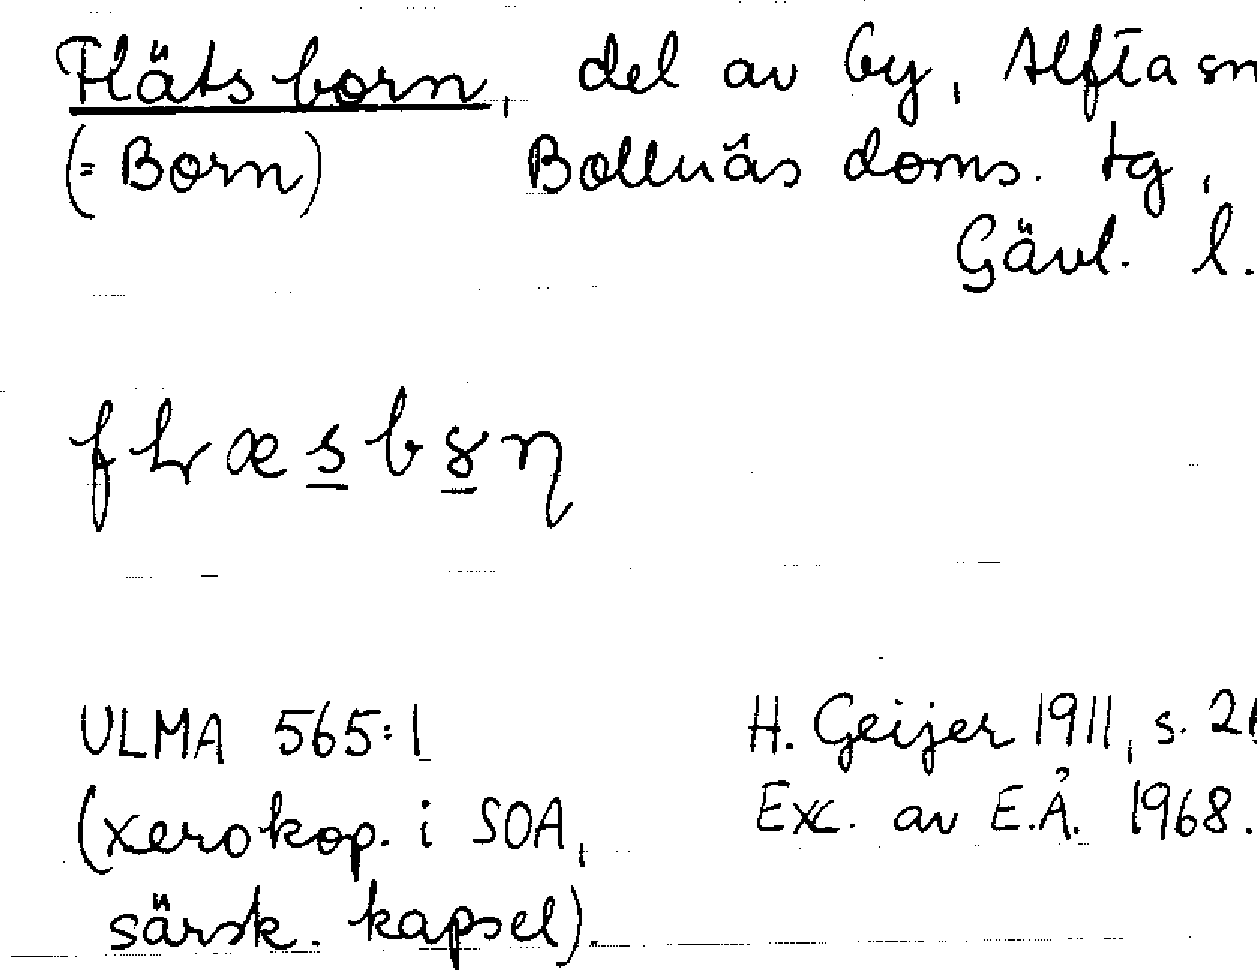 Flätsborn, del av by, Alfta sn
(= Born) Bollnäs doms. tg,
Gävl. l.
ULMA 565:1
H. Geijer 1911, s.
(xerokop. i SOA,
Exc. av E.Å. 1968.
särsk. kapsel).